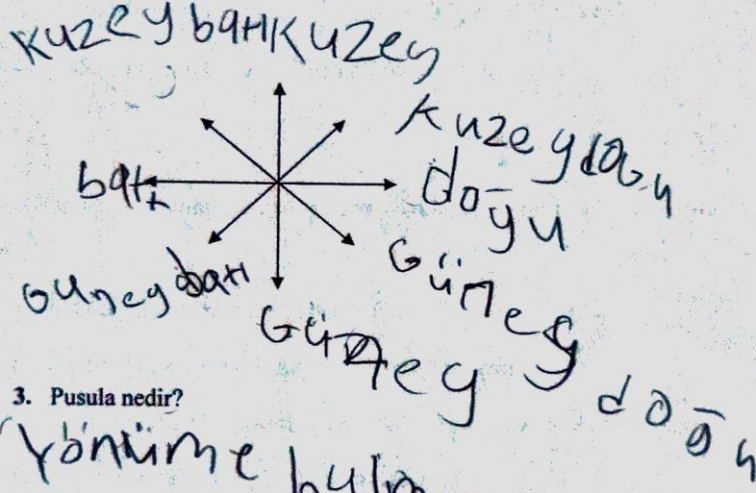 kuzeybatı kuzey
kuzeydoğu
batı
doğu
Güneybatı
Güney
Güneydoğu
3. Pusula nedir?
Yönüme bulm